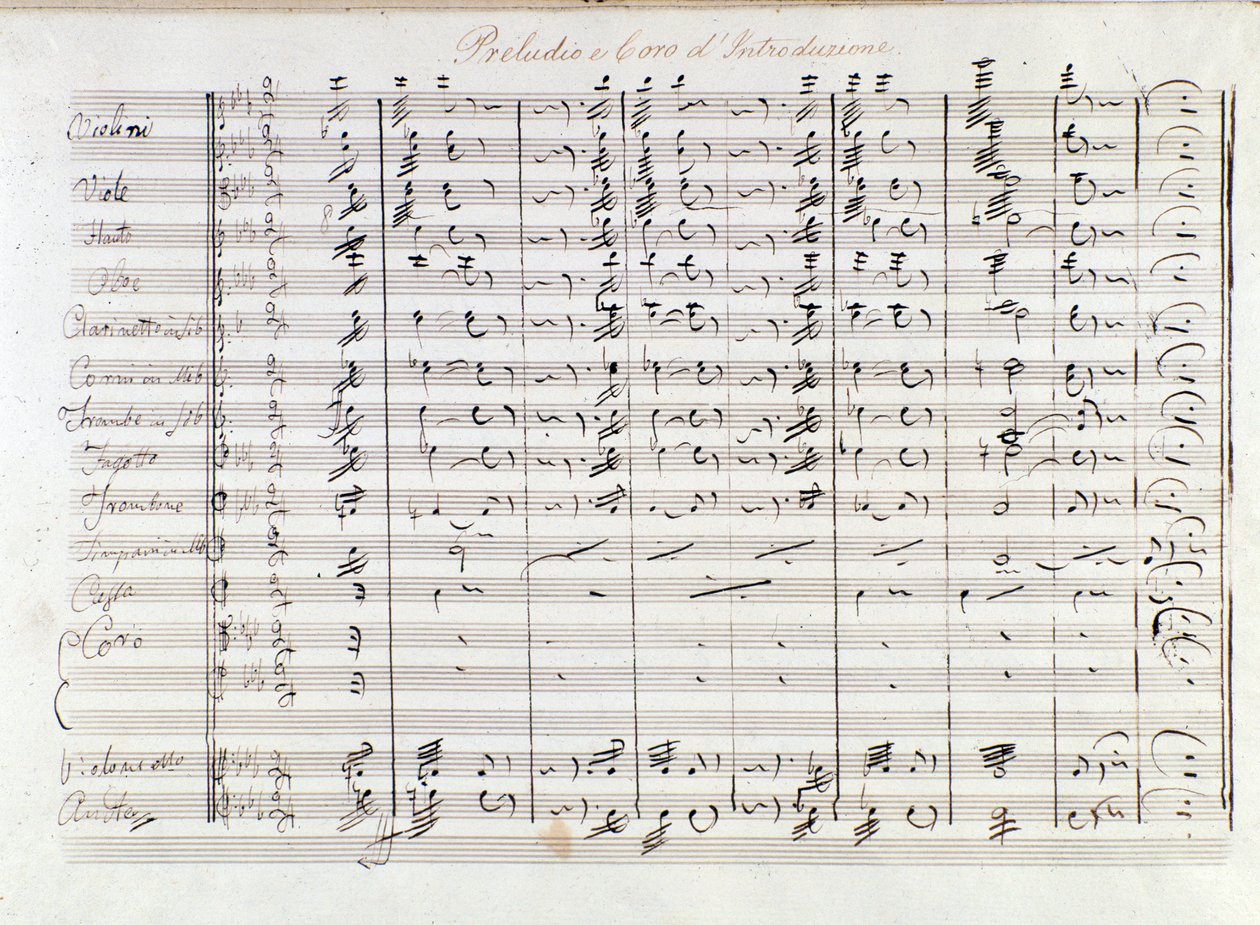 Preludio e Coro d'Introduzione.
Violini
Viole
Flauto
Oboe
Clarinetto in Sib
Corni in Mib
Trombe in
Fagotto
Trombone
Timpani in Mib
Cassa
Coro
Violoncello
8